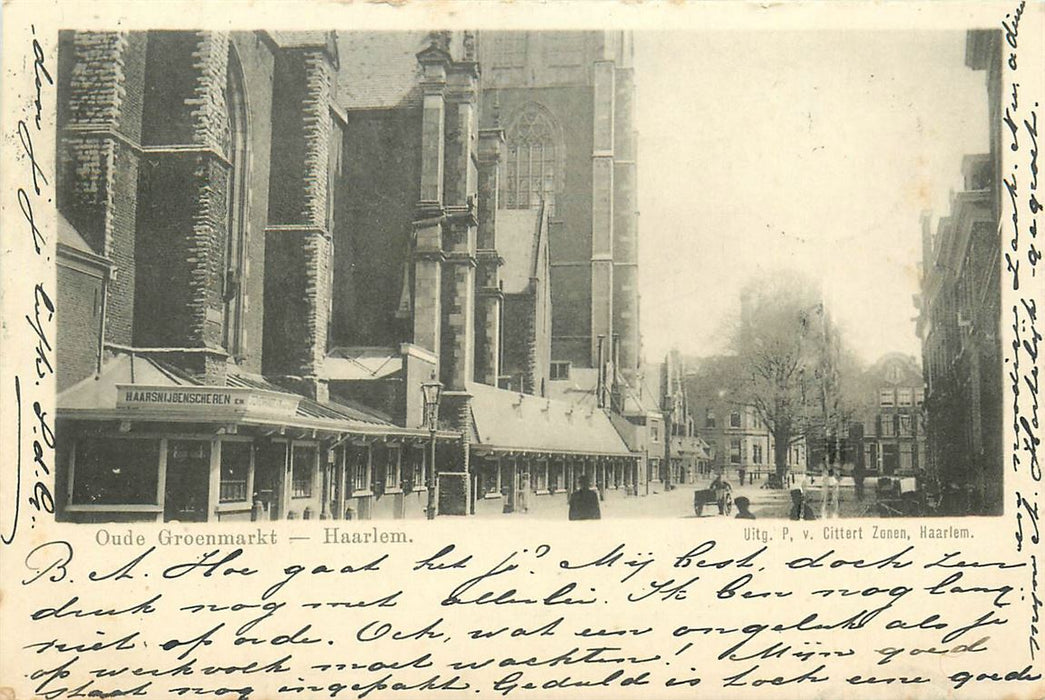 HAARSNIJDEN SCHEREN EN
Oude Groenmarkt — Haarlem.
Uitg. P. v. Cittert Zonen, Haarlem.
B. A. Hoe gaat het je? Mij best, doch zeer
druk nog met allerlei. Ik ben nog lang
niet op orde. Och, wat een ongeluk als je
op werkvolk moet wachten! Mijn goed
staat nog ingepakt. Geduld is toch eene goede
en noodige zaak. Nu adieu
hartelijk gegroet.
door je
liefh.